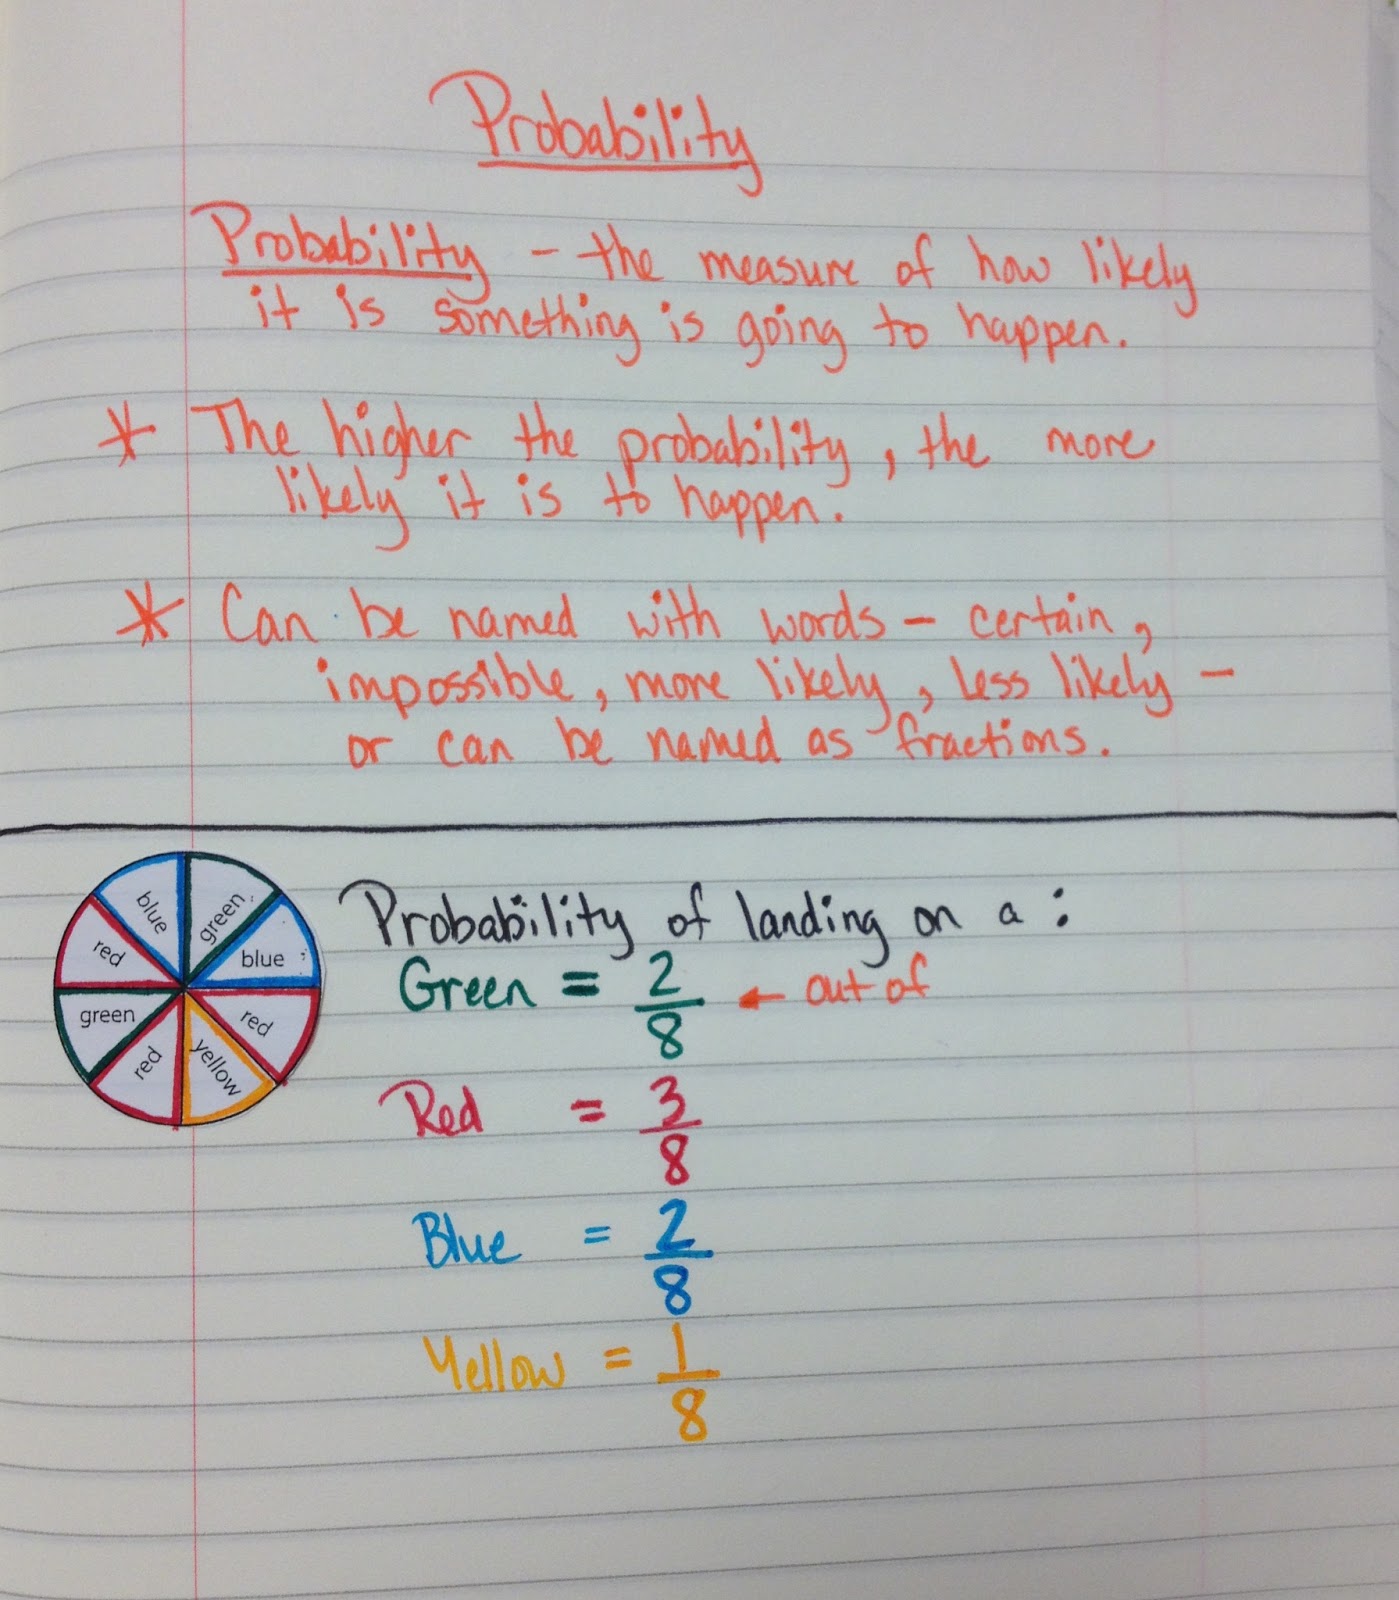 Probability
Probability - the measure of how likely
it is something is going to happen.
* The higher the probability, the more
likely it is to happen.
* Can be named with words - certain,
impossible, more likely, less likely -
or can be named as fractions.
blue
green
blue
red
yellow
red
green
red
Probability of landing on a:
Green = 2/8 ← out of
Red = 3/8
Blue = 2/8
Yellow = 1/8